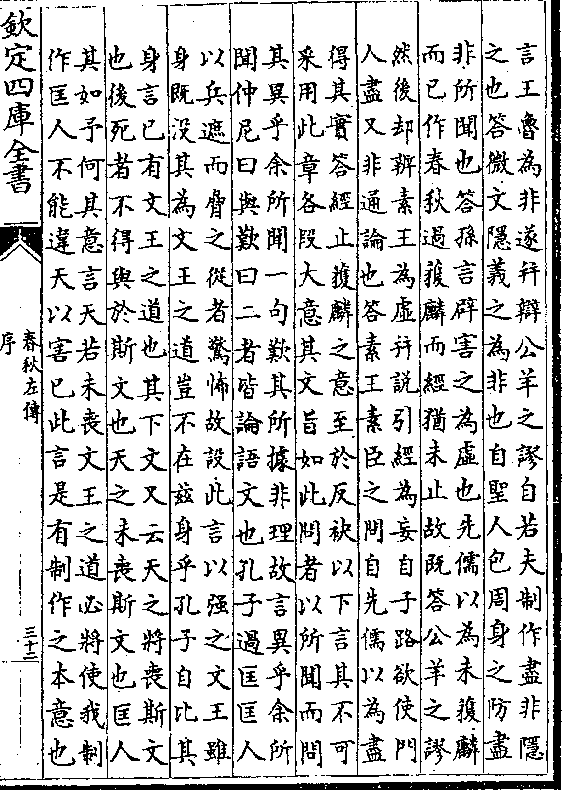 言王魯為非遂并辯公羊之謬自若夫制作盡非隱
之也答微文隱義之為非也自聖人包周身之防盡
非所聞也答孫言辟害之為虛也先儒以為未獲麟
而已作春秋過獲麟而經猶未止故既答公羊之謬
然後却辨素王為虛并說引經為妄自子路欲使門
人盡又非通論也答素王素臣之問自先儒以為盡
得其實答經止獲麟之意至於反袂以下言其不可
采用此章各段大意其文旨如此問者以所聞而問
其異乎余所聞一句歎其所據非理故言異乎余所
聞仲尼曰與歎曰二者皆論語文也孔子過匡匡人
以兵遮而脅之從者驚怖故設此言以强之文王雖
身既没其為文王之道豈不在兹身乎孔子自比其
身言已有文王之道也其下文又云天之將喪斯文
也後死者不得與於斯文也天之未喪斯文也匡人
其如予何其意言天若未喪文王之道必將使我制
作匡人不能違天以害已此言是有制作之本意也
欽定四庫全書
春秋左傳
序
三十二